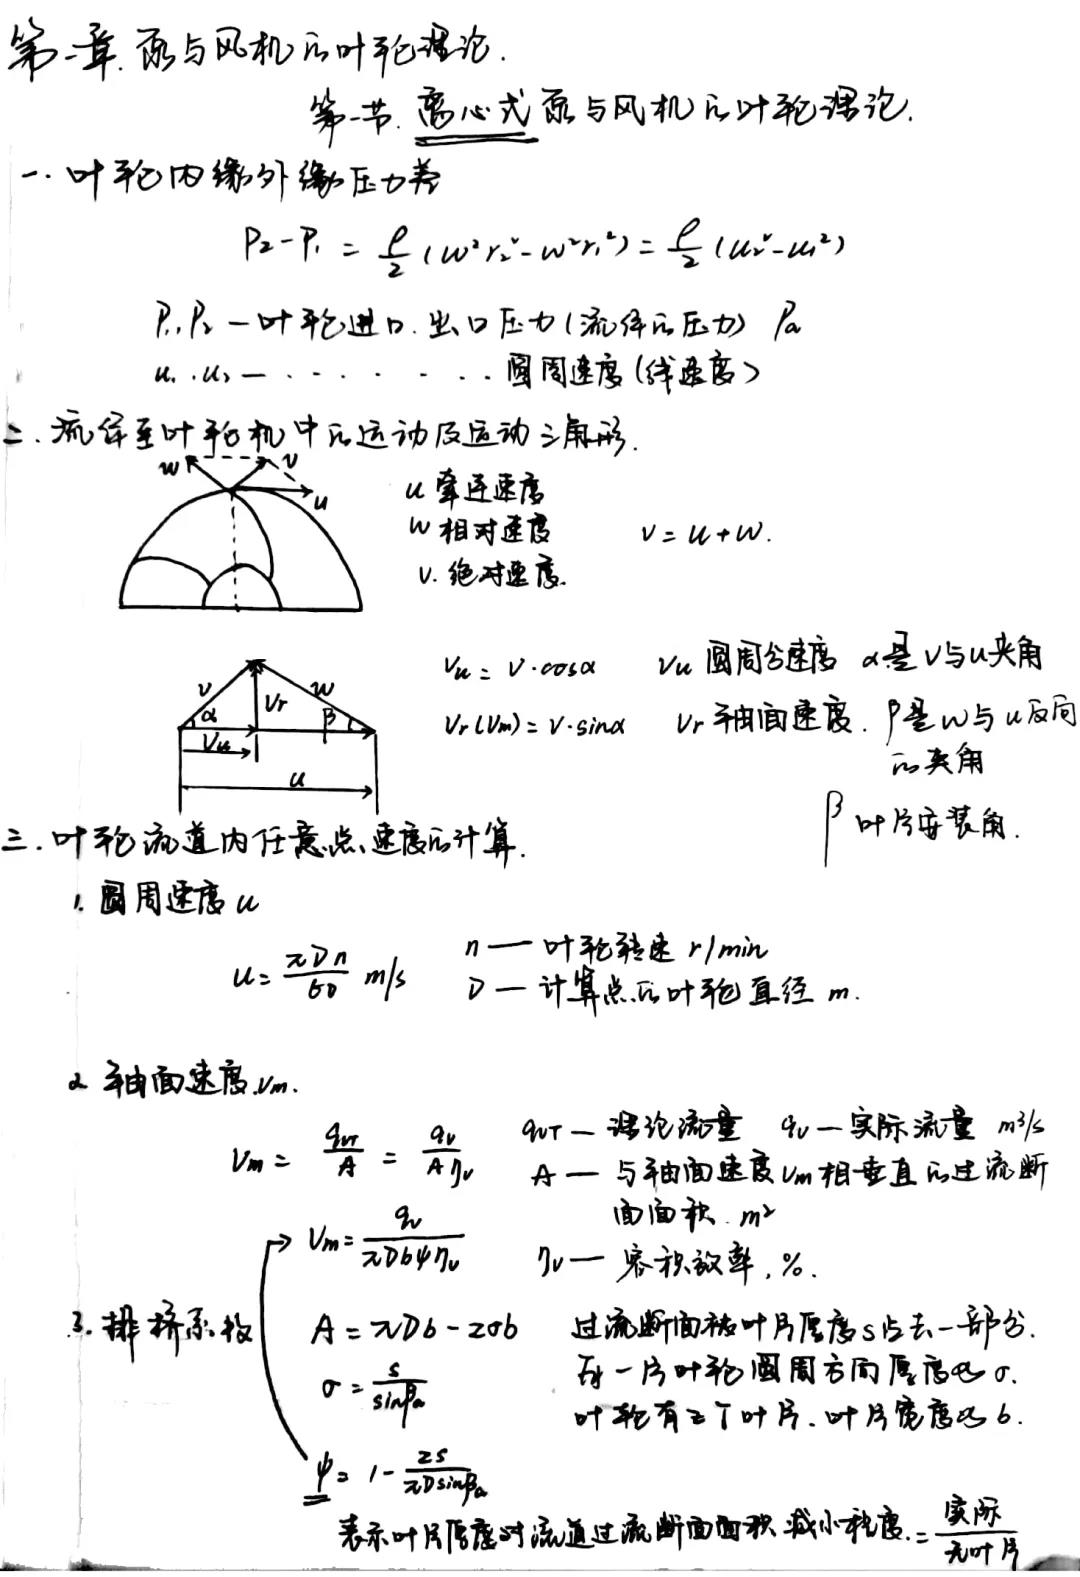 第一章.泵与风机的叶轮理论.
第一节.离心式泵与风机的叶轮理论.
一.叶轮内缘外缘压力差
P₂-P₁ = ρ/2 (w²r₂²-w²r₁²) = ρ/2 (u₂²-u₁²)
P₁.P₂ — 叶轮进口.出口压力(流体的压力) Pa
u₁.u₂ — · · · · · · · 圆周速度(线速度)
二.流体在叶轮机中的运动及运动三角形.
w v u
u 牵连速度
w 相对速度 v = u+w.
v. 绝对速度.
v α Vu Vr w β u
Vu = v·cosα Vu 圆周分速度 α是v与u夹角
Vr(Vm) = v·sinα Vr 轴面速度. β是w与u反向
的夹角
β 叶片安装角.
三.叶轮流道内任意点速度的计算.
1. 圆周速度 u
u = πDn/60 m/s
n — 叶轮转速 r/min
D — 计算点的叶轮直径 m.
2 轴面速度.Vm.
Vm = qvT/A = qv/Aηv
qvT — 理论流量 qv — 实际流量 m³/s
A — 与轴面速度Vm相垂直的过流断
面面积. m²
Vm = qv/πDbψηv
ηv — 容积效率, %.
3. 排挤系数
A = πDb - zσb
过流断面被叶片厚度s占去一部分.
σ = s/sinβa
每一片叶轮圆周方向厚度为σ.
叶轮有z个叶片.叶片宽度为b.
ψ = 1 - zs/πDsinβa
表示叶片厚度对流道过流断面面积减小程度. = 实际/无叶片